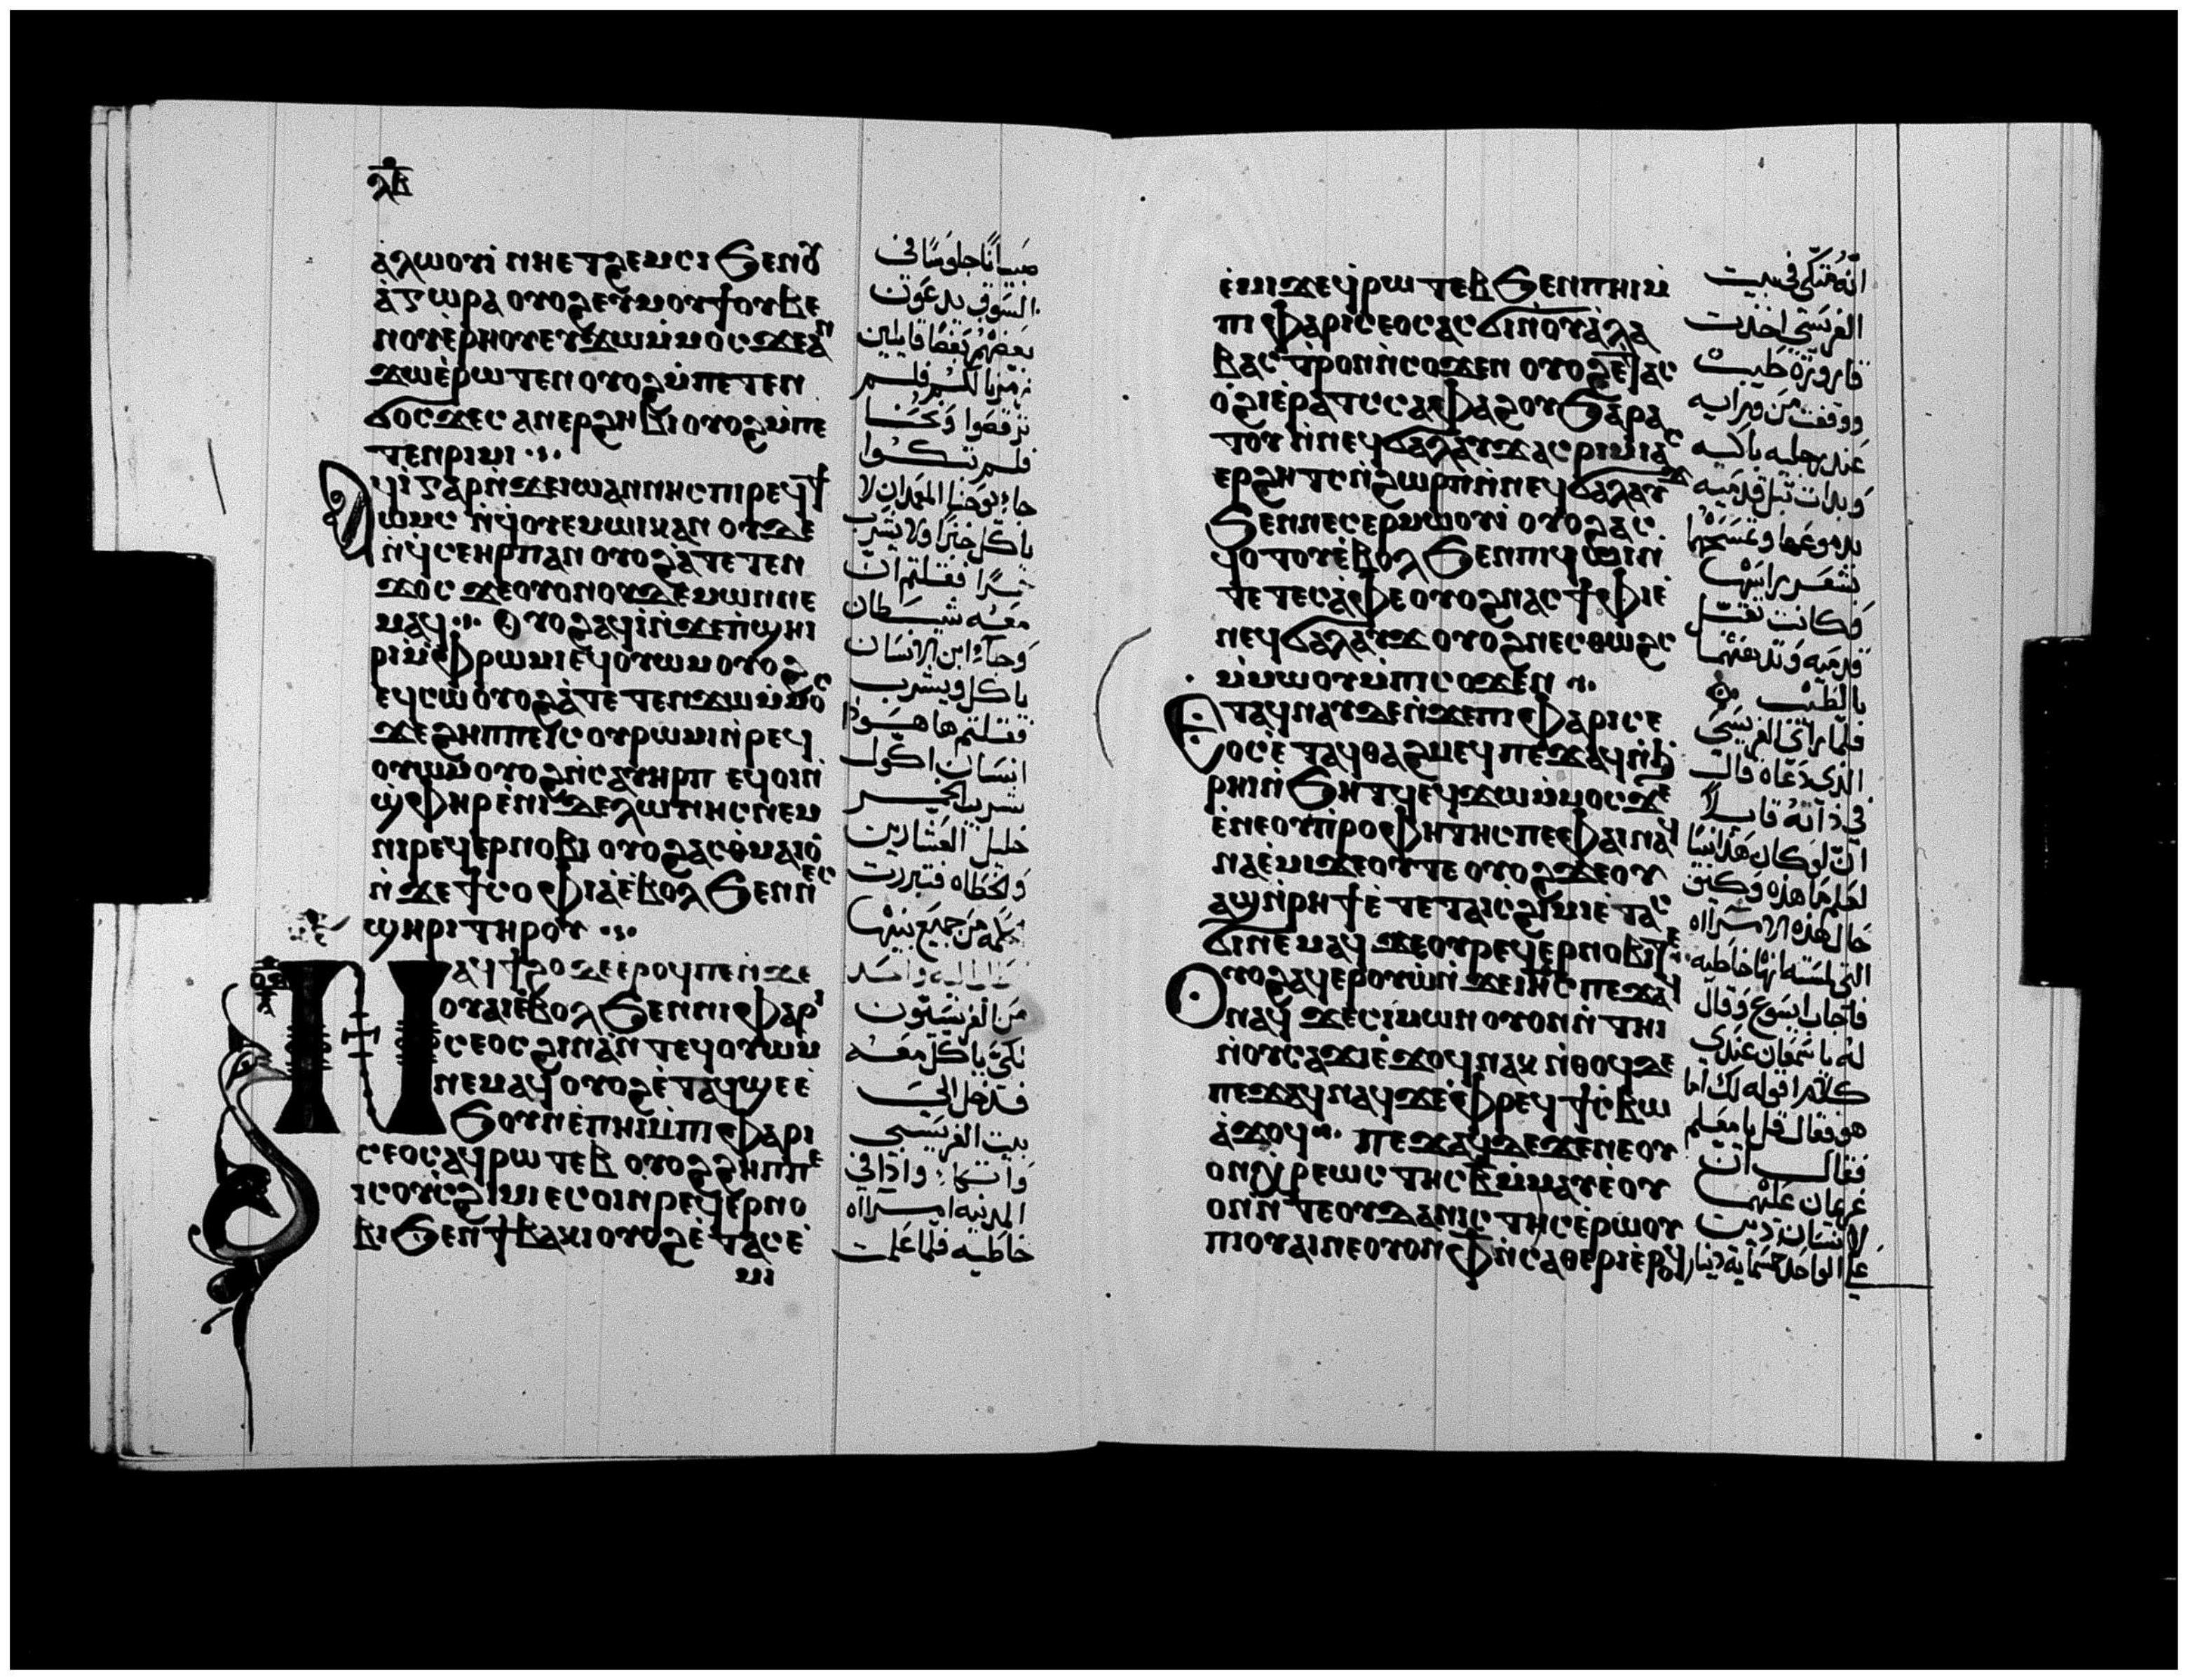 ⲗⲃ
ⲁ̀ⲗⲱⲟⲩⲓ̀ ⲛⲏⲉⲧϩⲉⲙⲥⲓ ϧⲉⲛⲟⲩ
ⲁ̀ⲅⲱⲣⲁ ⲟⲩⲟϩ ⲉⲩⲙⲟⲩϯ ⲟⲩⲃⲉ
ⲛⲟⲩⲉ̀ⲣⲏⲟⲩ ⲉⲩϫⲱⲙ̀ⲙⲟⲥ ϫⲉⲁⲛ
ϫⲱ ⲉ̀ⲣⲱⲧⲉⲛ ⲟⲩⲟϩ ⲙ̀ⲡⲉⲧⲉⲛ
ϭⲟⲥϫⲉⲥ ⲁⲛⲉⲣϩⲏⲃⲓ ⲟⲩⲟϩ ⲙ̀ⲡⲉ
ⲧⲉⲛⲣⲓⲙⲓ
ⲁϥⲓ̀ ⲅⲁⲣ ⲛ̀ϫⲉ ⲓⲱⲁⲛⲛⲏⲥ ⲡⲓⲣⲉϥϯ
ⲱⲙⲥ ⲛ̀ϥⲟⲩⲉⲙ ⲱⲓⲕ ⲁⲛ ⲟⲩⲇⲉ
ⲛ̀ϥⲥⲉ ⲏⲣⲡ ⲁⲛ ⲟⲩⲟϩ ⲁ̀ⲧⲉⲧⲉⲛ
ϫⲟⲥ ϫⲉ ⲟⲩⲟⲛ ⲟⲩⲇⲉⲙⲱⲛ ⲛⲉ
ⲙⲁϥ ⲟⲩⲟϩ ⲁϥⲓ̀ ⲛ̀ϫⲉ ⲡ̀ϣⲏ
ⲣⲓ ⲙ̀ⲫⲣⲱⲙⲓ ⲉϥⲟⲩⲱⲙ ⲟⲩⲟϩ
ⲉϥⲥⲱ ⲟⲩⲟϩ ⲁ̀ⲧⲉⲧⲉⲛϫⲱ ⲙ̀ⲙⲟⲥ
ϫⲉ ϩⲏⲡⲡⲉ ⲓⲥ ⲟⲩⲣⲱⲙⲓ ⲛ̀ⲣⲉϥ
ⲟⲩⲱⲙ ⲟⲩⲟϩ ⲛ̀ⲥⲁⲩⲏⲣⲡ ⲉϥⲟⲓ ⲛ̀
ϣ̀ⲫⲏⲣ ⲉ̀ⲛⲓⲧⲉⲗⲱⲛⲏⲥ ⲛⲉⲙ
ⲛⲓⲣⲉϥⲉⲣⲛⲟⲃⲓ ⲟⲩⲟϩ ⲁⲥⲑ̀ⲙⲁⲓⲟ
ⲛ̀ϫⲉ ϯⲥⲟⲫⲓⲁ ⲉ̀ⲃⲟⲗ ϧⲉⲛ ⲛⲉⲥ
ϣⲏⲣⲓ ⲧⲏⲣⲟⲩ
ⲛⲁϥϯϩⲟ ⲇⲉ ⲉ̀ⲣⲟϥ ⲡⲉ ⲛ̀ϫⲉ
ⲟⲩⲁⲓ ⲉ̀ⲃⲟⲗ ϧⲉⲛ ⲛⲓⲫⲁⲣⲓ
ⲥⲉⲟⲥ ϩⲓⲛⲁ ⲛ̀ⲧⲉϥⲟⲩⲱⲙ
ⲛⲉⲙⲁϥ ⲟⲩⲟϩ ⲉ̀ⲧⲁϥϣⲉ ⲉ̀
ϧⲟⲩⲛ ⲉ̀ⲡⲏⲓ ⲙ̀ⲡⲓⲫⲁⲣⲓ
ⲥⲉⲟⲥ ⲁϥⲣⲱⲧⲉⲃ ⲟⲩⲟϩ ϩⲏⲡⲡⲉ
ⲓⲥ ⲟⲩⲥϩⲓⲙⲓ ⲉⲥⲟⲓ ⲛ̀ⲣⲉϥⲉⲣⲛⲟ
ⲃⲓ ϧⲉⲛ ϯⲃⲁⲕⲓ ⲟⲩⲟϩ ⲉ̀ⲧⲁⲥⲉ̀
ⲙⲓ
صبيانًا جلوسًا في
السوق يدعون
بعضهم بعضًا قايلين
زمرنا لكم فلم
ترقصوا ونحنا
فلم تبكوا
جاء يوحنا المعمدان لا
ياكل خبزًا ولا يشرب
خمرًا فقلتم ان
معه شيطان
وجاء ابن الانسان
ياكل ويشرب
فقلتم ها هوذا
انسان اكول
شريب الخمر
خليل العشارين
والخطاه فتبررت
الحكمه من جميع بنيها
من الفريسيون
لكي ياكل معه
فدخل الي
بيت الفريسي
واتكا واذا في
المدينه امراه
خاطيه فلما علمت
ⲉ̀ⲙⲓ ϫⲉ ϥⲣⲱⲧⲉⲃ ϧⲉⲛ ⲡⲏⲓ ⲙ̀
ⲡⲓⲫⲁⲣⲓⲥⲉⲟⲥ ⲁⲥϭⲓ ⲛ̀ⲟⲩⲁ̀ⲗⲁ
ⲃⲁⲥⲧⲣⲟⲛ ⲛ̀ⲥⲟϫⲉⲛ ⲟⲩⲟϩ ⲉⲧⲁⲥ
ⲟ̀ϩⲓ ⲉ̀ⲣⲁⲧⲥ ⲥⲁⲫⲁϩⲟⲩ ϧⲁⲣⲁ
ⲧⲟⲩ ⲛ̀ⲛⲉϥϭⲁⲗⲁⲩϫ ⲁⲥⲣⲓⲙⲓ ⲁⲥ
ⲉⲣϩⲏⲧⲥ ⲛ̀ϩⲱⲣⲡ ⲛ̀ⲛⲉϥϭⲁⲗⲁⲩϫ
ϧⲉⲛ ⲛⲉⲥⲉⲣⲙⲱⲟⲩⲓ̀ ⲟⲩⲟϩ ⲁⲥ
ϥⲟⲧⲟⲩ ⲉ̀ⲃⲟⲗ ϧⲉⲛ ⲡⲓϥⲱⲓ ⲛ̀
ⲧⲉ ⲧⲉⲥⲁ̀ⲫⲉ ⲟⲩⲟϩ ⲛⲁⲥϯⲫⲓ ⲉ̀
ⲛⲉϥϭⲁⲗⲁⲩϫ ⲟⲩⲟϩ ⲛⲉⲥⲑⲱϩⲥ
ⲙ̀ⲙⲱⲟⲩ ⲙ̀ⲡⲓⲥⲟϫⲉⲛ
ⲉⲧⲁϥⲛⲁⲩ ⲇⲉ ⲛ̀ϫⲉ ⲡⲓⲫⲁⲣⲓⲥⲉ
ⲟⲥ ⲉ̀ⲧⲁϥⲑⲁϩⲙⲉϥ ⲡⲉϫⲁϥ ⲛ̀ϧ
ⲣⲏⲓ ⲛ̀ϧⲏⲧϥ ⲉϥϫⲱ ⲙ̀ⲙⲟⲥ ϫⲉ
ⲉ̀ⲛⲉ ⲟⲩⲡ̀ⲣⲟⲫⲏⲧⲏⲥ ⲡⲉ ⲫⲁⲓ ⲛⲁϥ
ⲛⲁⲉ̀ⲙⲓ ϫⲉ ⲟⲩ ⲧⲉ ⲟⲩⲟϩ ϫⲉ ⲟⲩ
ⲁϣ ⲛ̀ⲣⲏϯ ⲉ̀ ⲧⲉ ⲧⲁⲓⲥϩⲓⲙⲓ ⲉⲧⲁⲥ
ϭⲓ ⲛⲉⲙⲁϥ ϫⲉ ⲟⲩⲣⲉϥⲉⲣⲛⲟⲃⲓ ⲧⲉ
ⲟⲩⲟϩ ⲁϥⲉⲣⲟⲩⲱ̀ ⲛ̀ϫⲉ ⲓⲏⲥ ⲡⲉϫⲁϥ
ⲛⲁϥ ϫⲉ ⲥⲓⲙⲱⲛ ⲟⲩⲟⲛ ⲛ̀ⲧⲏⲓ
ⲛ̀ⲟⲩⲥⲁϫⲓ ⲉ̀ϫⲟϥ ⲛⲁⲕ ⲛ̀ⲑⲟϥ ⲇⲉ
ⲡⲉϫⲁϥ ⲛⲁϥ ϫⲉ ⲫⲣⲉϥϯⲥⲃⲱ
ⲁ̀ϫⲟϥ ⲡⲉϫⲁϥ ⲇⲉ ϫⲉ ⲛⲉ ⲟⲩ
ⲟⲛ ⲭⲣⲉⲱⲥⲧⲏⲥ ⲃ̅ ⲙ̀ⲙⲁⲩ ⲉ̀ⲟⲩ
ⲟⲛ ⲛ̀ⲧⲉ ⲟⲩⲇⲁⲛⲓⲥⲧⲏⲥ ⲉ̀ⲣⲱⲟⲩ
ⲡⲓⲟⲩⲁⲓ ⲛⲉ ⲟⲩⲟⲛ ⲫ̅ ⲛ̀ⲥⲁⲑⲉⲣⲓ ⲉ̀ⲣⲟϥ
انه متكى في بيت
الفريسي اخذت
قارورة طيب
ووقفت من ورايه
عند رجليه باكيه
وبدات تبل قدميه
بدموعها وتمسحهما
بشعر راسها
وكانت تقبل
قدميه وتدهنهما
بالطيب
فلما راى الفريسي
الذي دعاه قال
في ذاته قايلًا
ان لو كان هذا نبيًا
لعلم ما هذه وكيف
حال هذه الامراه
التي لمسته انها خاطيه
فاجاب ايسوع وقال
له يا سمعان عندي
كلامًا اقوله لك اما
هو فقال قل يا معلم
فقال ان
غريمان عليهما
لانسان دين
على الواحد خمسمايه دينار